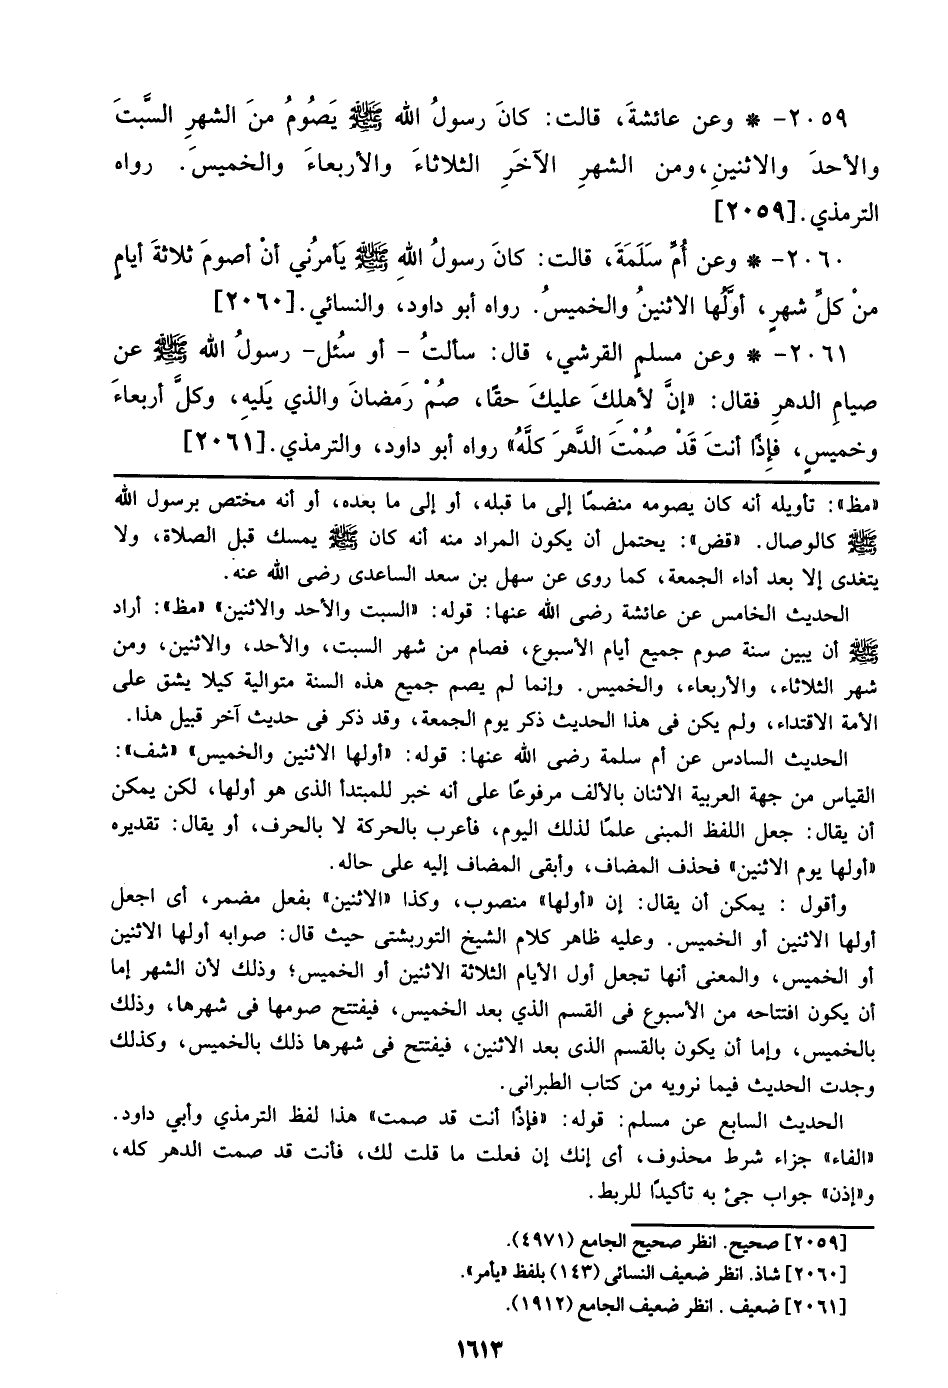 ٢٠٥٩- * وعن عائشةَ، قالت: كانَ رسولُ الله ﷺ يَصُومُ منَ الشهرِ السَّبتَ
والأحدَ والاثنينِ،ومن الشهرِ الآخَرِ الثلاثاءَ والأربعاءَ والخميسَ. رواه
الترمذي.[٢٠٥٩]
٢٠٦٠- * وعن أُمِّ سَلَمَةَ، قالت: كانَ رسولُ اللهِ ﷺ يَأمرُني أنْ أصومَ ثلاثةَ أيامٍ
منْ كلِّ شهرٍ، أوَّلُها الاثنينُ والخميسُ. رواه أبو داود، والنسائي.[٢٠٦٠]
٢٠٦١- * وعن مسلمٍ القرشي، قال: سألتُ - أو سُئل- رسولُ الله ﷺ عن
صيامِ الدهرِ فقال: «إنَّ لأهلِكَ عليكَ حقًا، صُمْ رَمضانَ والذي يَليهِ، وكلَّ أربعاءَ
وخميسٍ، فإِذًا أنتَ قَدْ صُمْتَ الدَّهرَ كلَّهُ» رواه أبو داود، والترمذي.[٢٠٦١]
«مظ»: تأويله أنه كان يصومه منضمًا إلى ما قبله، أو إلى ما بعده، أو أنه مختص برسول الله
ﷺ كالوصال. «قض»: يحتمل أن يكون المراد منه أنه كان ﷺ يمسك قبل الصلاة، ولا
يتغدى إلا بعد أداء الجمعة، كما روى عن سهل بن سعد الساعدى رضى الله عنه.
الحديث الخامس عن عائشة رضى الله عنها: قوله: «السبت والأحد والاثنين» «مظ»: أراد
ﷺ أن يبين سنة صوم جميع أيام الأسبوع، فصام من شهر السبت، والأحد، والاثنين، ومن
شهر الثلاثاء، والأربعاء، والخميس. وإنما لم يصم جميع هذه السنة متوالية كيلا يشق على
الأمة الاقتداء، ولم يكن فى هذا الحديث ذكر يوم الجمعة، وقد ذكر فى حديث آخر قبيل هذا.
الحديث السادس عن أم سلمة رضى الله عنها: قوله: «أولها الاثنين والخميس» «شف»:
القياس من جهة العربية الاثنان بالألف مرفوعًا على أنه خبر للمبتدأ الذى هو أولها، لكن يمكن
أن يقال: جعل اللفظ المبنى علمًا لذلك اليوم، فأعرب بالحركة لا بالحرف، أو يقال: تقديره
«أولها يوم الاثنين» فحذف المضاف، وأبقى المضاف إليه على حاله.
وأقول : يمكن أن يقال: إن «أولها» منصوب، وكذا «الاثنين» بفعل مضمر، أى اجعل
أولها الاثنين أو الخميس. وعليه ظاهر كلام الشيخ التوربشتى حيث قال: صوابه أولها الاثنين
أو الخميس، والمعنى أنها تجعل أول الأيام الثلاثة الاثنين أو الخميس؛ وذلك لأن الشهر إما
أن يكون افتتاحه من الأسبوع فى القسم الذي بعد الخميس، فيفتتح صومها فى شهرها، وذلك
بالخميس، وإما أن يكون بالقسم الذى بعد الاثنين، فيفتتح فى شهرها ذلك بالخميس، وكذلك
وجدت الحديث فيما نرويه من كتاب الطبرانى.
الحديث السابع عن مسلم: قوله: «فإذًا أنت قد صمت» هذا لفظ الترمذي وأبي داود.
«الفاء» جزاء شرط محذوف، أى إنك إن فعلت ما قلت لك، فأنت قد صمت الدهر كله،
و«إذن» جواب جئ به تأكيدًا للربط.
[٢٠٥٩] صحيح. انظر صحيح الجامع (٤٩٧١).
[٢٠٦٠] شاذ. انظر ضعيف النسائى (١٤٣) بلفظ «يأمر».
[٢٠٦١] ضعيف . انظر ضعيف الجامع (١٩١٢).
١٦١٣